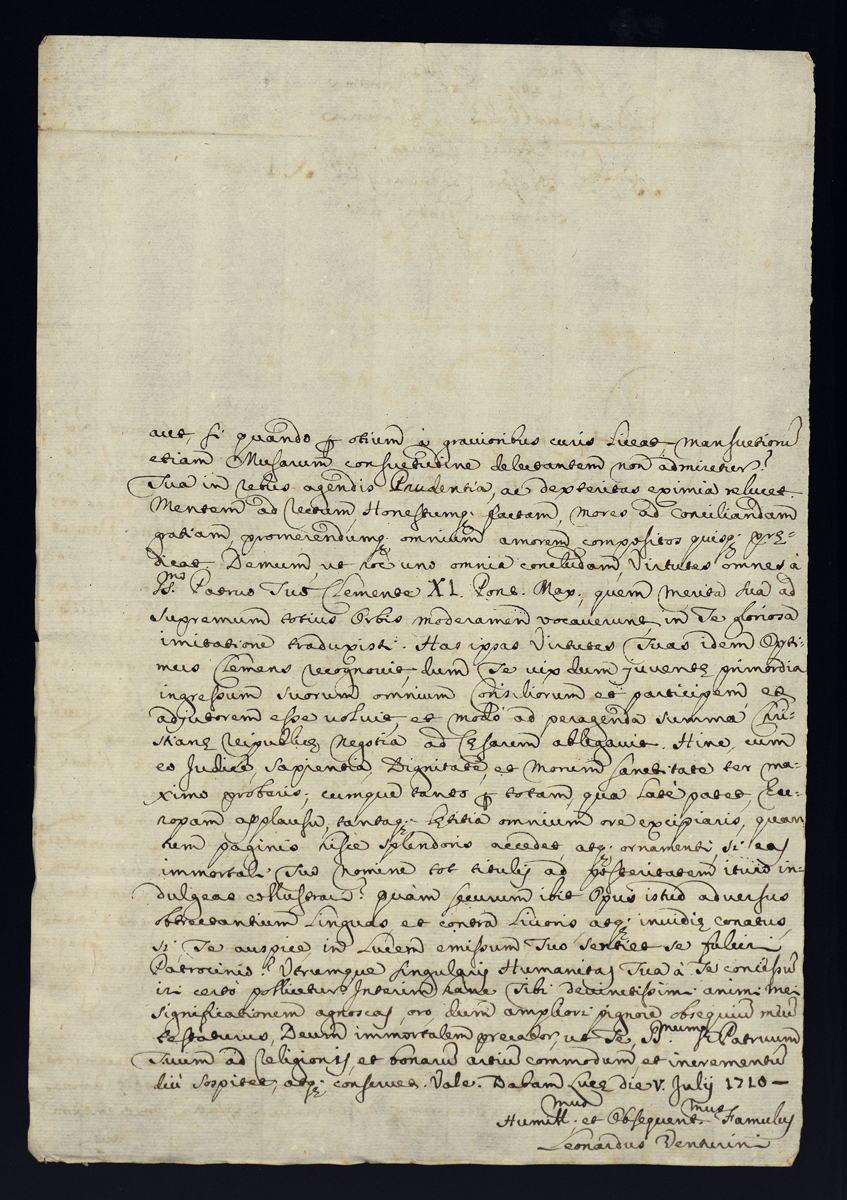 aut, si quando ꝑ otium à gravioribus curis liceat, mansuetiorũ
etiam Musarum consuetudine delectantem non admiretur?
Tua in rebus agendis Prudentia, ac dexteritas eximia relucet.
Mentem ad rectum, Honestumq; factam, mores ad conciliandam
gratiam, promerendumq; omnium amorem compositos quisq; prę-
dicat. Demum, ut hoc uno omnia concludam, Virtutes omnes à
SS.mo Patruo Tuo Clemente XI. Pont. Max., quem merita sua ad
supremum totius Orbis moderamen vocaverunt, in Te gloriosa
imitatione traduxisti. Has ipsas Virtutes Tuas idem Opti-
mus Clemens recognovit, dum Te vix dum juventę primordia
ingressum suorum omnium Consiliorum et participem et
adjutorem esse voluit, et modò ad peragenda summa Chri-
stianę reipublicę negotia ad Cęsarem ablegavit. Hinc, cum
eo Judice, sapientia, Dignitate, et Morum sanctitate ter ma-
ximo proberis; cumque tanto ꝑ totam, qua late patet, Eu-
ropam applausu, tantaq; Lętitia omnium ore excipiaris, quan
tum paginis hisce splendoris accedet, atq; ornamenti, si eas
immortali Tuo nomine tot titulis ad posteritatem ituro in-
dulgeas collustrari? quàm securum ibit Opus istud adversus
obtrectantium Linguas et contra Livoris, atq; invidię conatus,
si, Te auspice, in Lucem emissum Tuo sentiet se fulciri
Patrocinio? Utrumque singularis Humanitas Tua à Te concessũ
iri certò pollicetur. Interim hanc Tibi devinctissimi animi mei
significationem agnoscas, oro dum ampliori pignore obsequiũ meũ
testaturus, Deum immortalem precabor, ut Te, SS.mumq; Patruum
Tuum ad religionis, et bonarũ artiũ commodum, et incrementũ
diù sospitet, atq; conservet. Vale. Dabam Lucę die V. Julij 1710 —
Humill.mus et Obsequent.mus Famulus
Leonardus Venturini